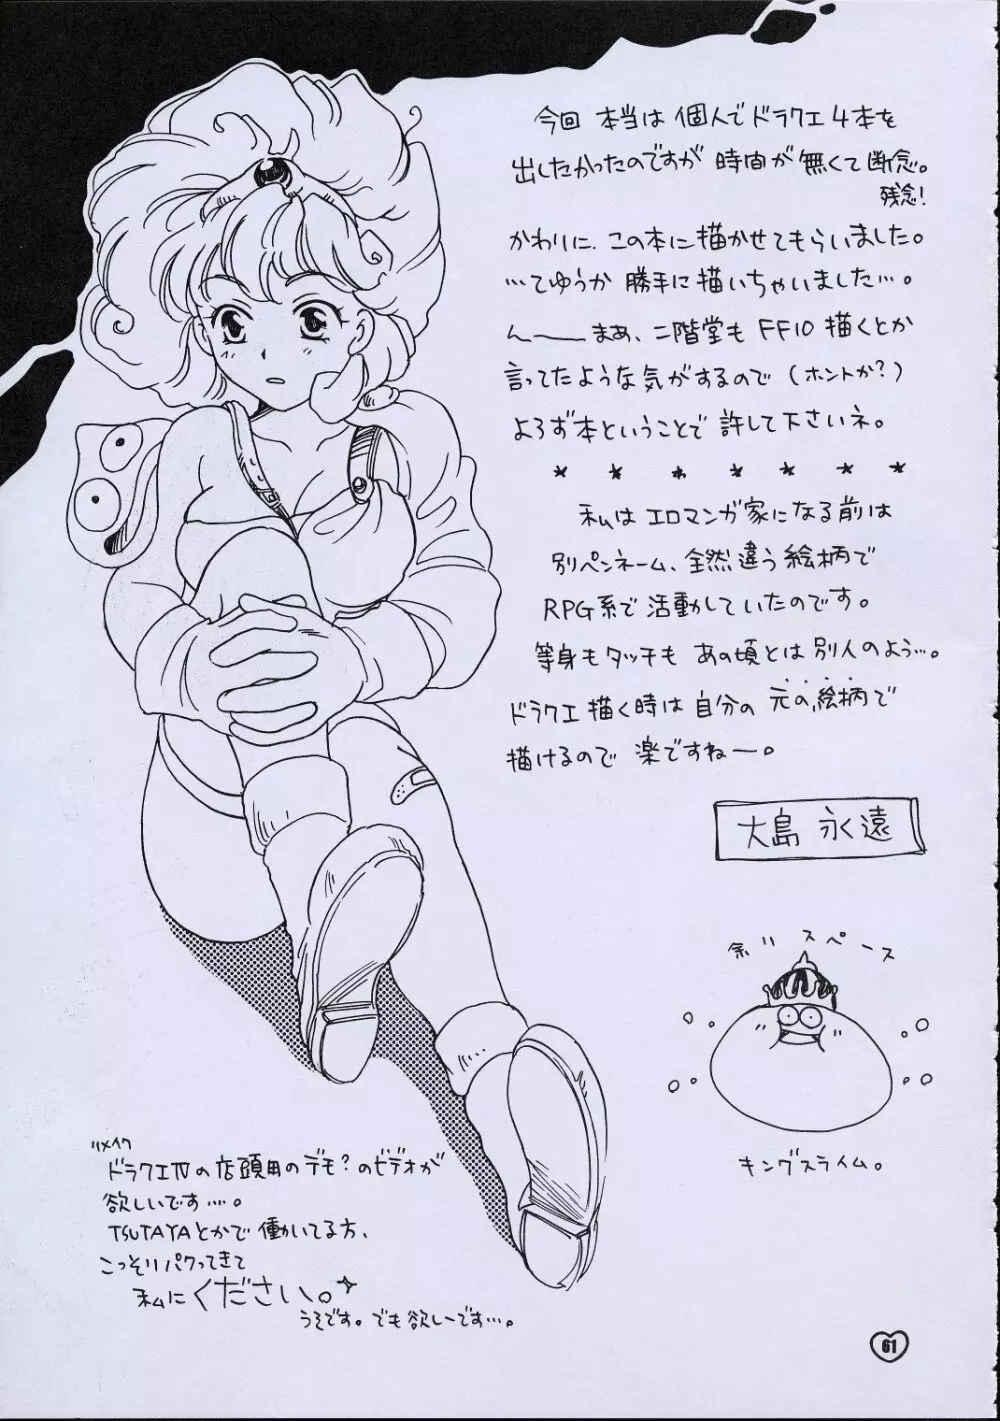 今回 本当は 個人で ドラクエ 4本を
出したかったのですが 時間が 無くて断念。
残念!
かわりに、この本に描かせてもらいました。
…てゆうか 勝手に描いちゃいました…。
んーーまぁ、二階堂も FF10 描くとか
言ってたような気がするので (ホントか?)
よろず本ということで 許して下さいネ。
* * * * * * *
私は エロマンガ家になる前は
別ペンネーム、全然違う絵柄で
RPG系で活動していたのです。
等身もタッチも あの頃とは 別人のよう…。
ドラクエ 描く時は 自分の 元の絵柄で
描けるので 楽ですねー。
大島 永遠
余リ スペース
キングスライム。
リメイク
ドラクエIVの店頭用のデモ?のビデオが
欲しいです…。
TSUTAYAとかで 働いてる方、
こっそりパクってきて
私にください。
うそです。でも欲しーです…。
61